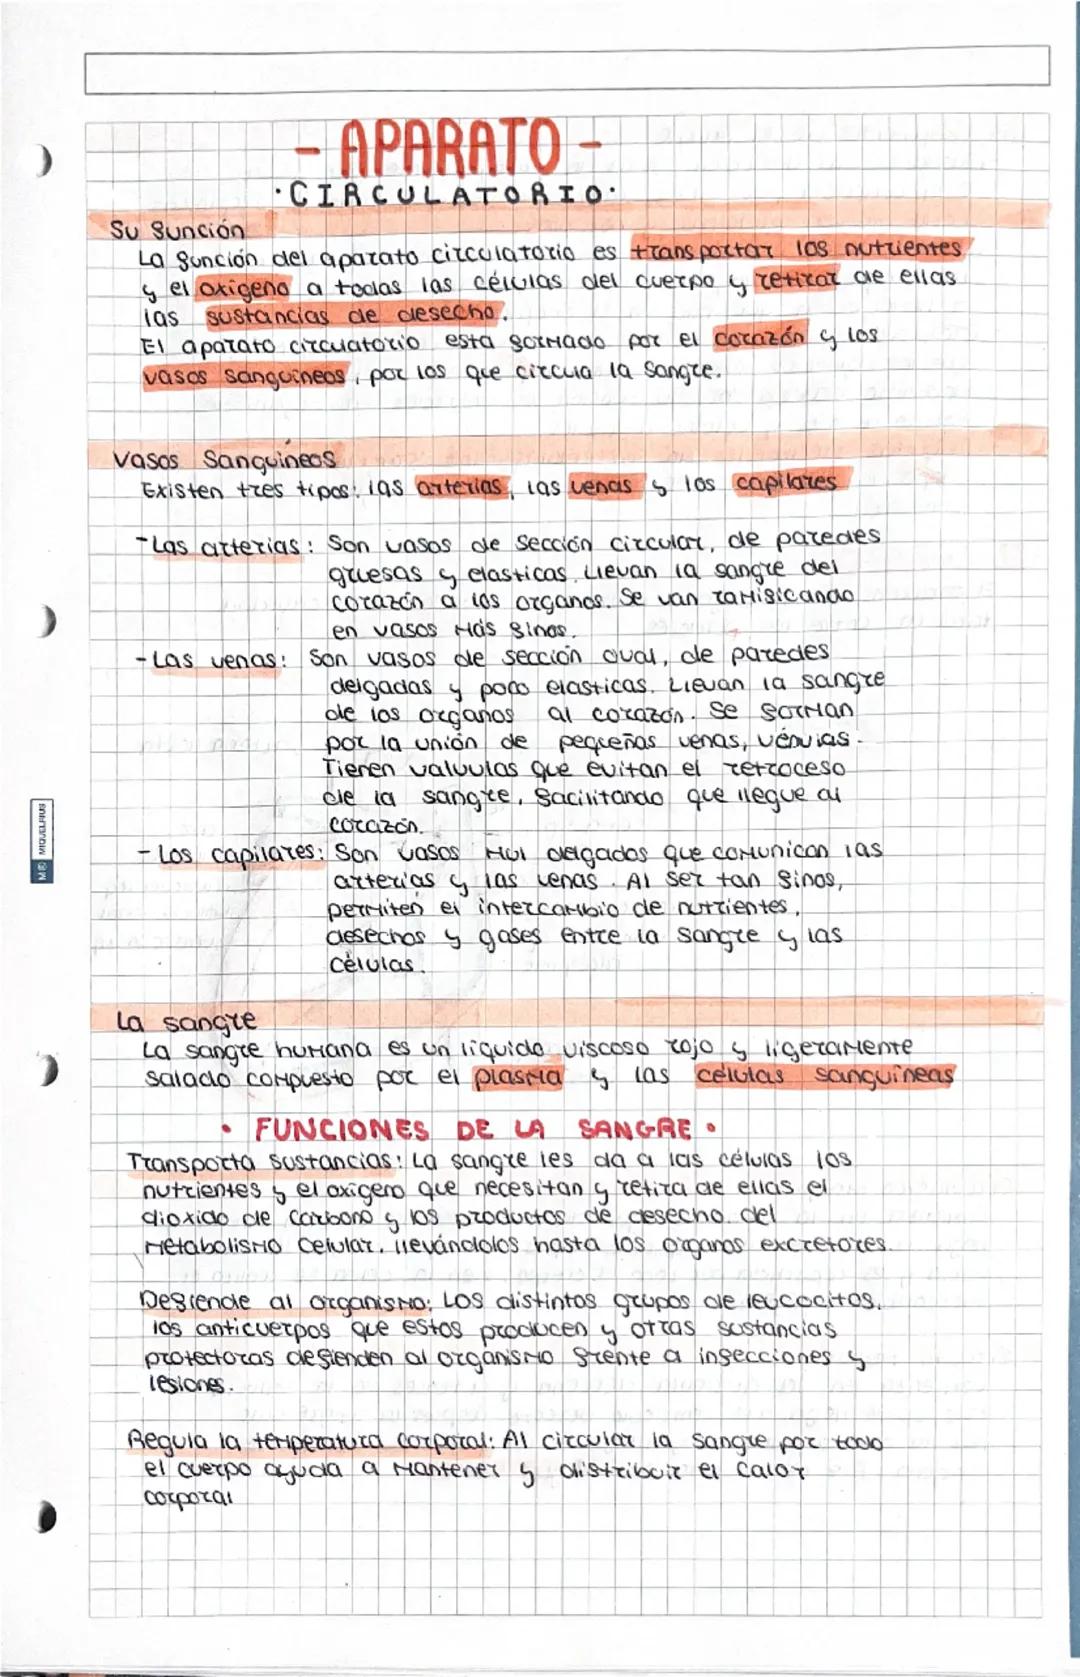 - APARATO -
·CIRCULATORIO·
Su función
La función del aparato circulatorio es transportar los nutrientes
y el oxigeno a todas las células del cuerpo y retirar de ellas
las sustancias de desecho.
El aparato circuatorio esta formado por el corazón y los
vasos sanguíneos, por los que circula la sangre.
Vasos Sanguíneos
Existen tres tipos: las arterias, las venas y los capilares
- Las arterias: Son vasos de sección circular, de paredes
gruesas y elasticas. Llevan la sangre del
corazón a los organos. Se van ramificando
en vasos más finos.
- Las venas: Son vasos de sección oval, de paredes
delgadas y poco elasticas. Llevan la sangre
de los organos al corazón. Se forman
por la unión de pequeñas venas, vénulas.
Tienen valvulas que evitan el retroceso
de la sangre, facilitando que llegue al
corazón.
- Los capilares: Son vasos mui delgados que comunican las
arterias y las venas. Al ser tan finos,
permiten el intercambio de nutrientes,
desechos y gases entre la sangre y las
células.
La sangre
La sangre humana es un líquido viscoso rojo y ligeramente
salado compuesto por el plasma y las celulas sanguíneas
· FUNCIONES DE LA SANGRE ·
Transporta sustancias: La sangre les da a las células los
nutrientes y el oxigeno que necesitan y retira de ellas el
dioxido de carbono y los productos de desecho del
metabolismo celular, llevándolos hasta los órganos excretores.
Defiende al organismo: Los distintos grupos de leucocitos,
los anticuerpos que estos producen y otras sustancias
protectoras defienden al organismo frente a infecciones y
lesiones.
Regula la temperatura corporal: Al circular la sangre por todo
el cuerpo ayuda a mantener y distribuir el calor
corporal
MIQUELRIUS